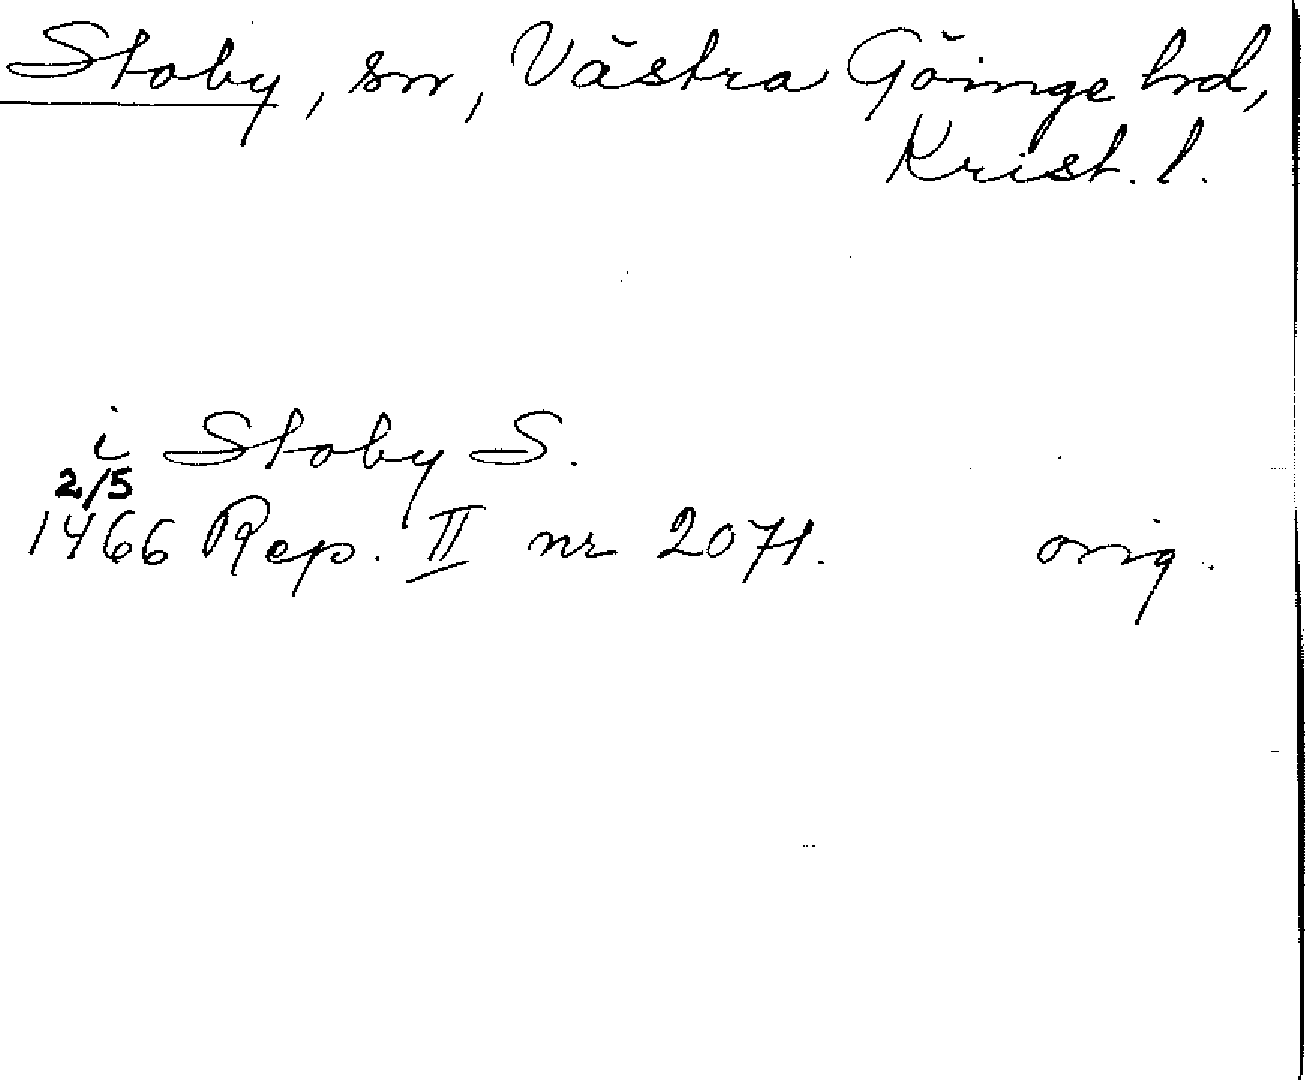 Stoby, sn, Västra Göinge hrd,
Krist. l.
i Stoby S.
2/5
1466 Rep. II nr 2071. orig.